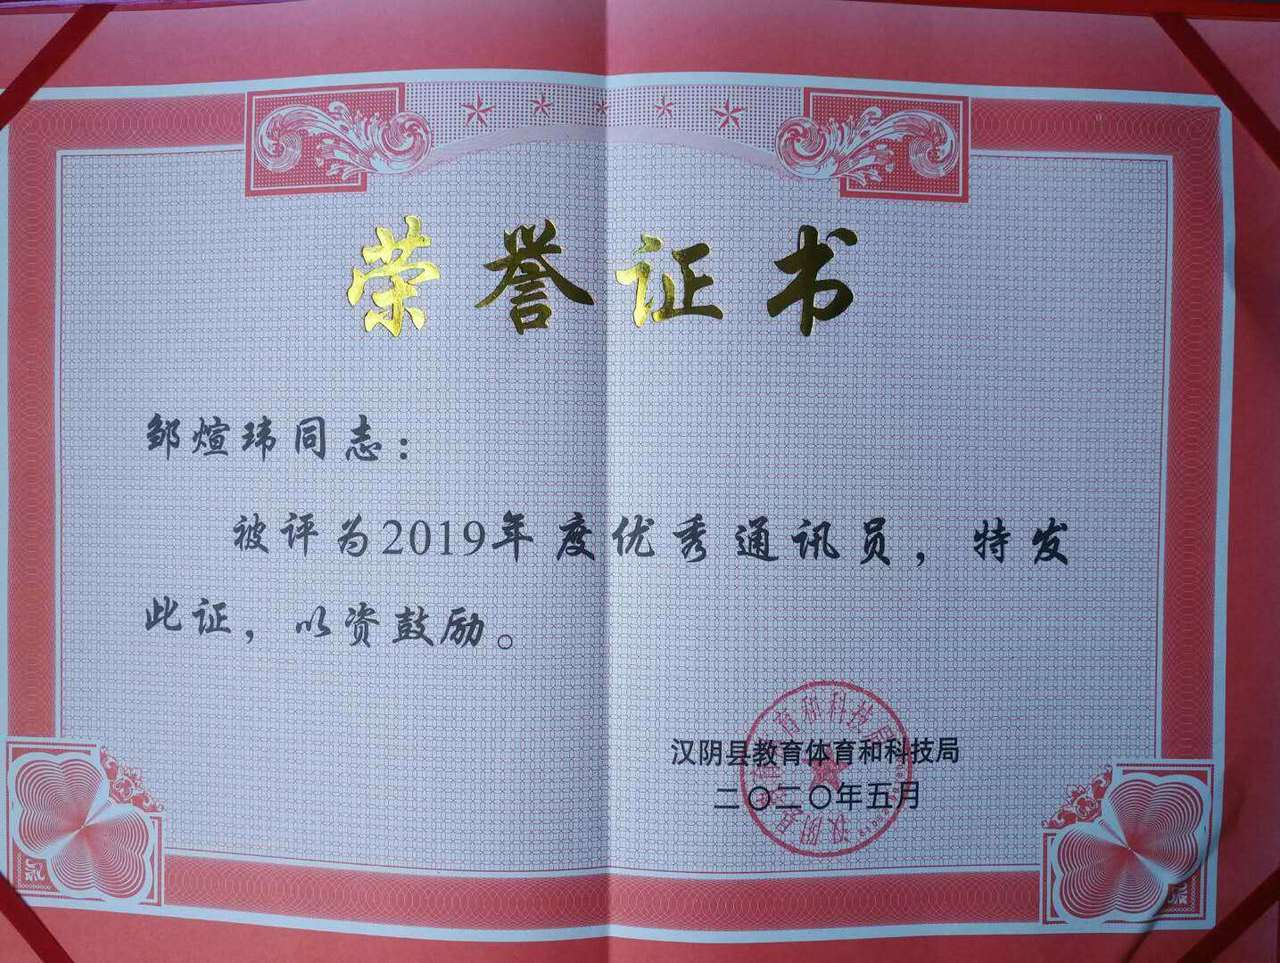 荣誉证书
邹煊玮同志：
被评为2019年度优秀通讯员，特发
此证，以资鼓励。
汉阴县教育体育和科技局
二〇二〇年五月
汉阴县教育体育和科技局